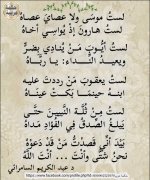 لستُ موسَى ولا عصايَ عصاه
لستُ هارونَ إذْ يُواسِي أخاهُ
لستُ أيّوبَ مَنْ يُنادي بضرٍّ
ويعيدُ النداءَ: يا ربّاهُ
لستُ يعقوبَ مَنْ رددتَ عليه
ابنَهُ حينما بَكَتْ عيناهُ
لستُ مِنْ ثُلَّةِ النبيينَ حتَّى
يبلغَ الصدقُ في الفؤادِ مَداهُ
بَيْدَ أنِّي قصدتُ مَنْ قَدْ دعَوْهُ
نحنُ شتَّى وأنتَ ... أنتَ اللهُ
د عبد الكريم السامرائي